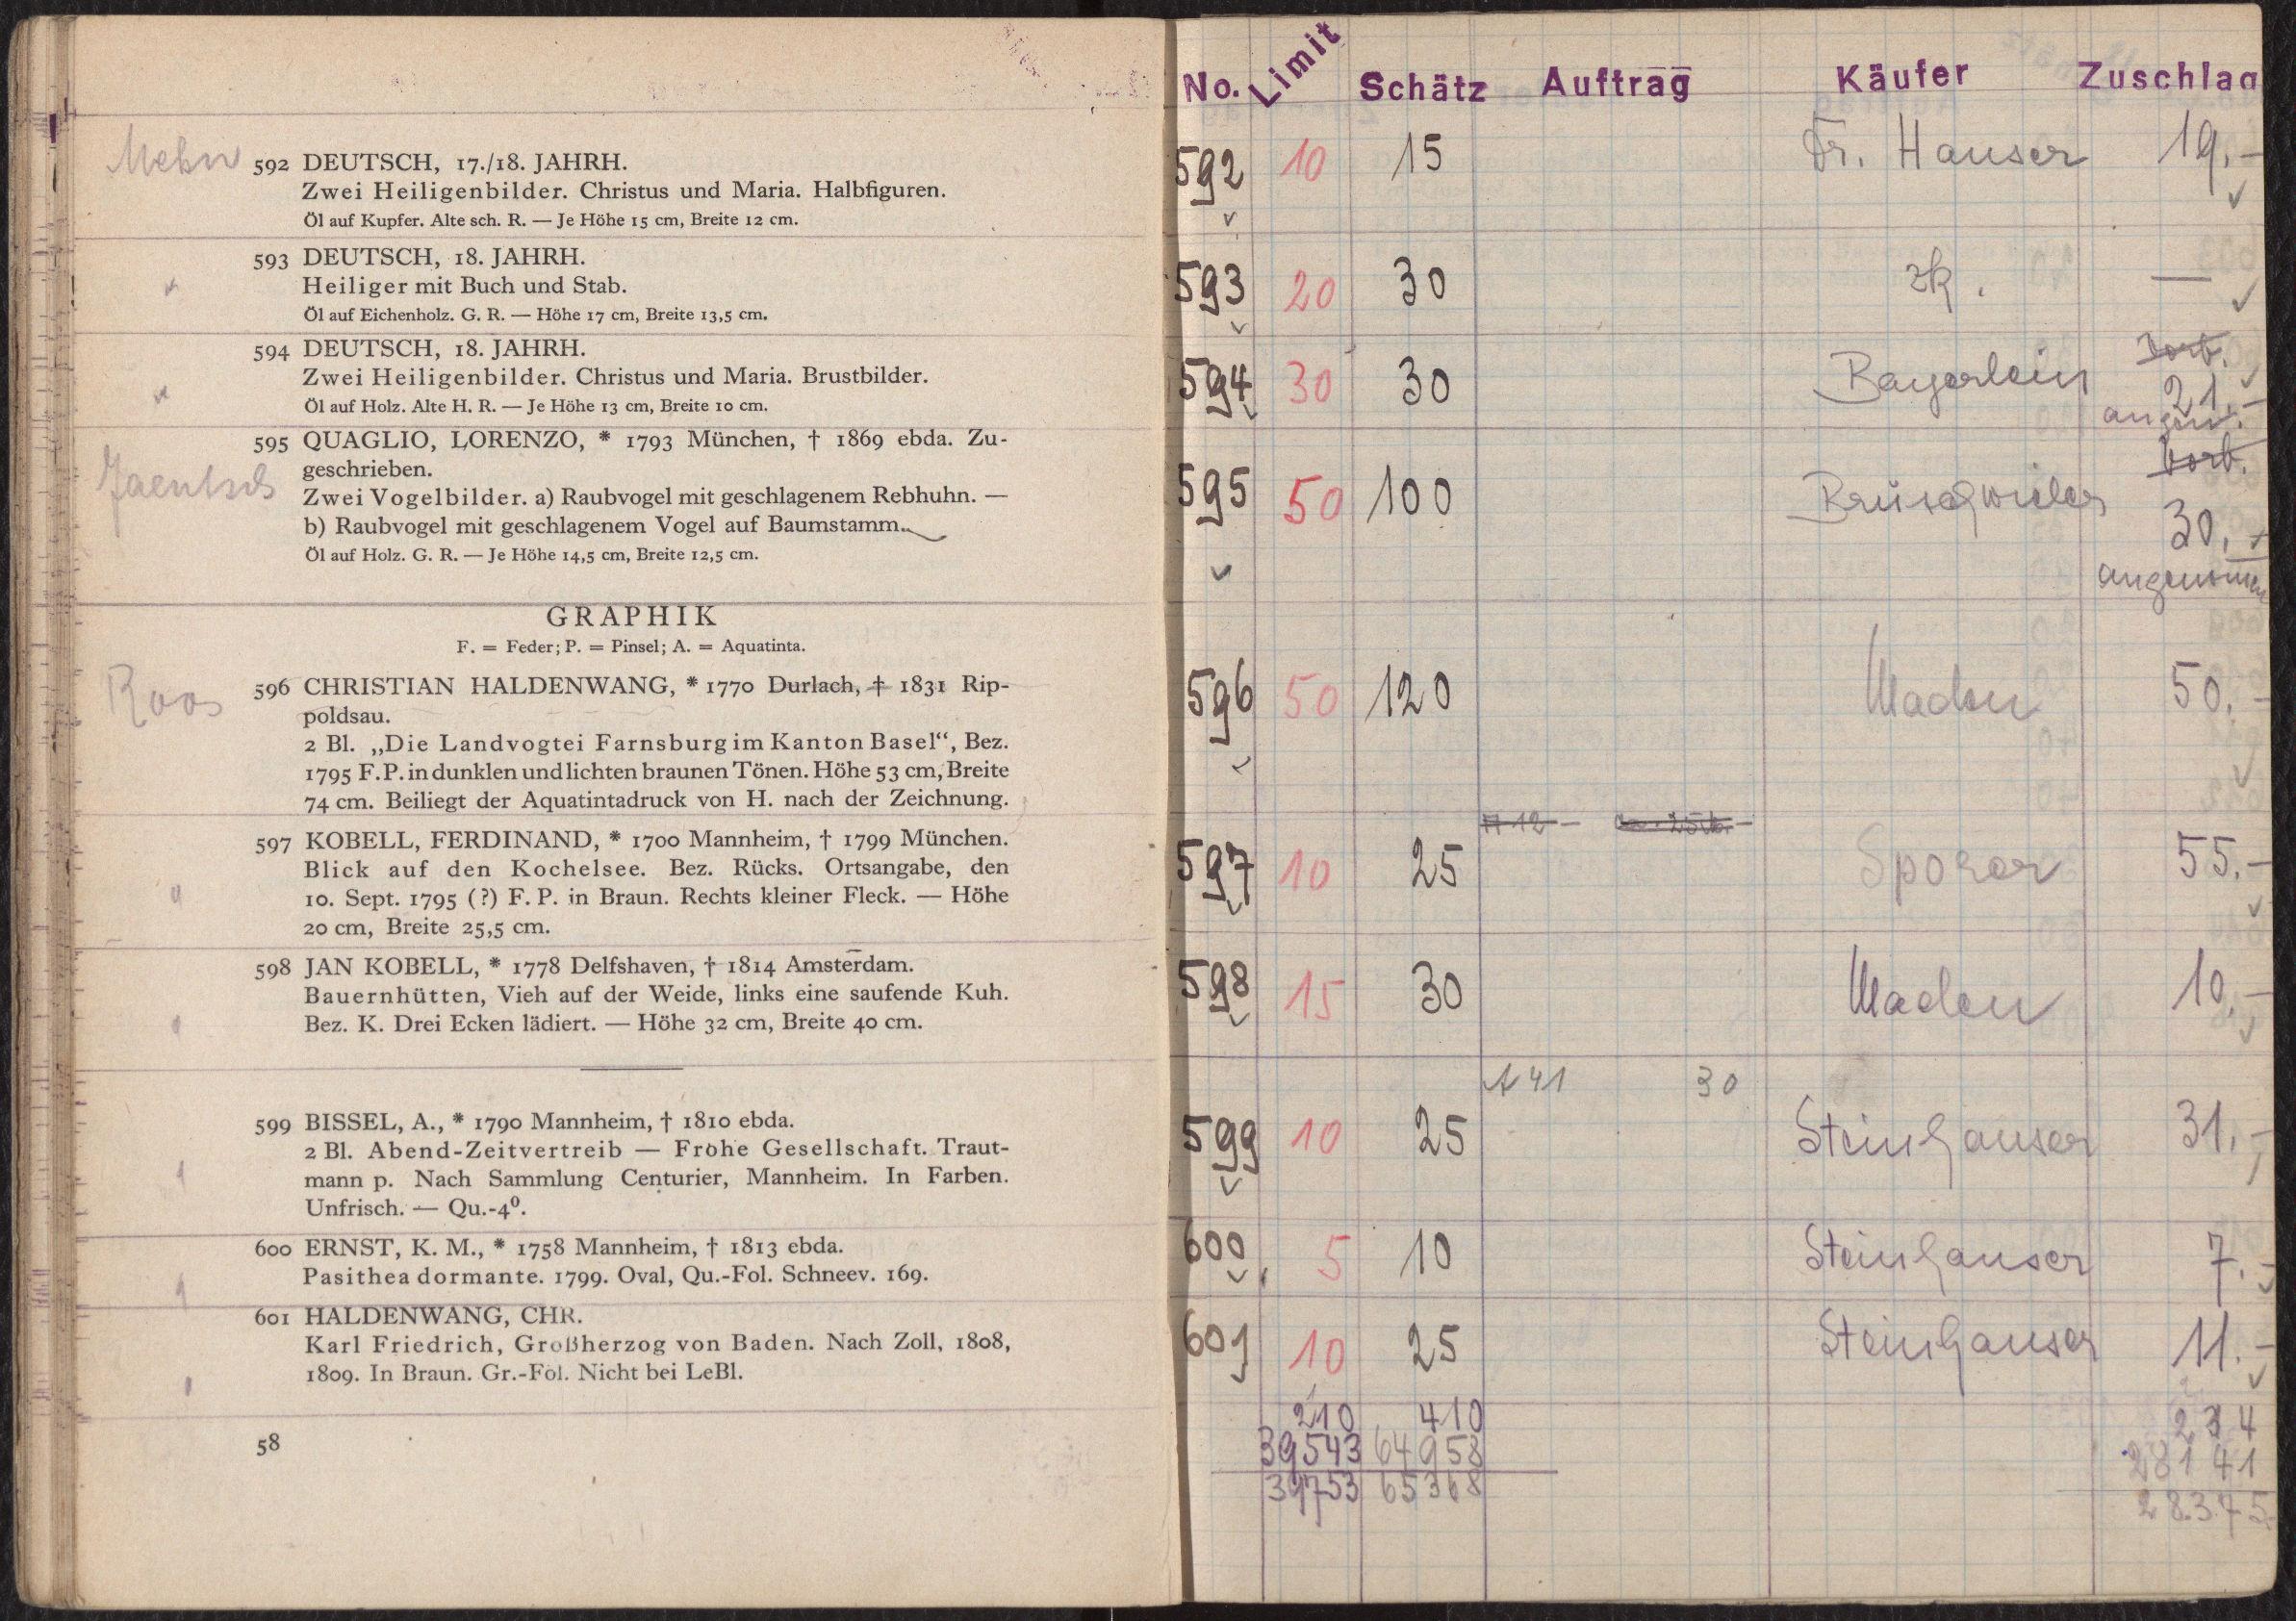 592 DEUTSCH, 17./18. JAHRH.
Zwei Heiligenbilder. Christus und Maria. Halbfiguren.
Öl auf Kupfer. Alte sch. R. — Je Höhe 15 cm, Breite 12 cm.
593 DEUTSCH, 18. JAHRH.
Heiliger mit Buch und Stab.
Öl auf Eichenholz. G. R. — Höhe 17 cm, Breite 13,5 cm.
594 DEUTSCH, 18. JAHRH.
Zwei Heiligenbilder. Christus und Maria. Brustbilder.
Öl auf Holz. Alte H. R. — Je Höhe 13 cm, Breite 10 cm.
595 QUAGLIO, LORENZO, * 1793 München, † 1869 ebda. Zu-
geschrieben.
Zwei Vogelbilder. a) Raubvogel mit geschlagenem Rebhuhn. —
b) Raubvogel mit geschlagenem Vogel auf Baumstamm.
Öl auf Holz. G. R. — Je Höhe 14,5 cm, Breite 12,5 cm.
GRAPHIK
F. = Feder; P. = Pinsel; A. = Aquatinta.
Roos
596 CHRISTIAN HALDENWANG, * 1770 Durlach, † 1831 Rip-
poldsau.
2 Bl. „Die Landvogtei Farnsburg im Kanton Basel“, Bez.
1795 F. P. in dunklen und lichten braunen Tönen. Höhe 53 cm, Breite
74 cm. Beiliegt der Aquatintadruck von H. nach der Zeichnung.
597 KOBELL, FERDINAND, * 1700 Mannheim, † 1799 München.
Blick auf den Kochelsee. Bez. Rücks. Ortsangabe, den
10. Sept. 1795 (?) F. P. in Braun. Rechts kleiner Fleck. — Höhe
20 cm, Breite 25,5 cm.
598 JAN KOBELL, * 1778 Delfshaven, † 1814 Amsterdam.
Bauernhütten, Vieh auf der Weide, links eine saufende Kuh.
Bez. K. Drei Ecken lädiert. — Höhe 32 cm, Breite 40 cm.
599 BISSEL, A., * 1790 Mannheim, † 1810 ebda.
2 Bl. Abend-Zeitvertreib — Frohe Gesellschaft. Traut-
mann p. Nach Sammlung Centurier, Mannheim. In Farben.
Unfrisch. — Qu.-4⁰.
600 ERNST, K. M., * 1758 Mannheim, † 1813 ebda.
Pasithea dormante. 1799. Oval, Qu.-Fol. Schneev. 169.
601 HALDENWANG, CHR.
Karl Friedrich, Großherzog von Baden. Nach Zoll, 1808,
1809. In Braun. Gr.-Fol. Nicht bei LeBl.
58
No. Limit Schätz Auftrag Käufer Zuschlag
592 10 15 Dr. Hauser 19.-
593 20 30 zk. —
Vorb.
594 30 30 Bayerlein 21.-
angen.
Vorb.
595 50 100 30.-
angenommen
596 50 120 50.-
597 10 25 55.-
598 15 30 10.-
A 41 30
599 10 25 Steinhauser 31.-
600 5 10 Steinhauser 7.-
601 10 25 Steinhauser 11.-
210 410 234
39543 64958 28141
39753 65368 28.375